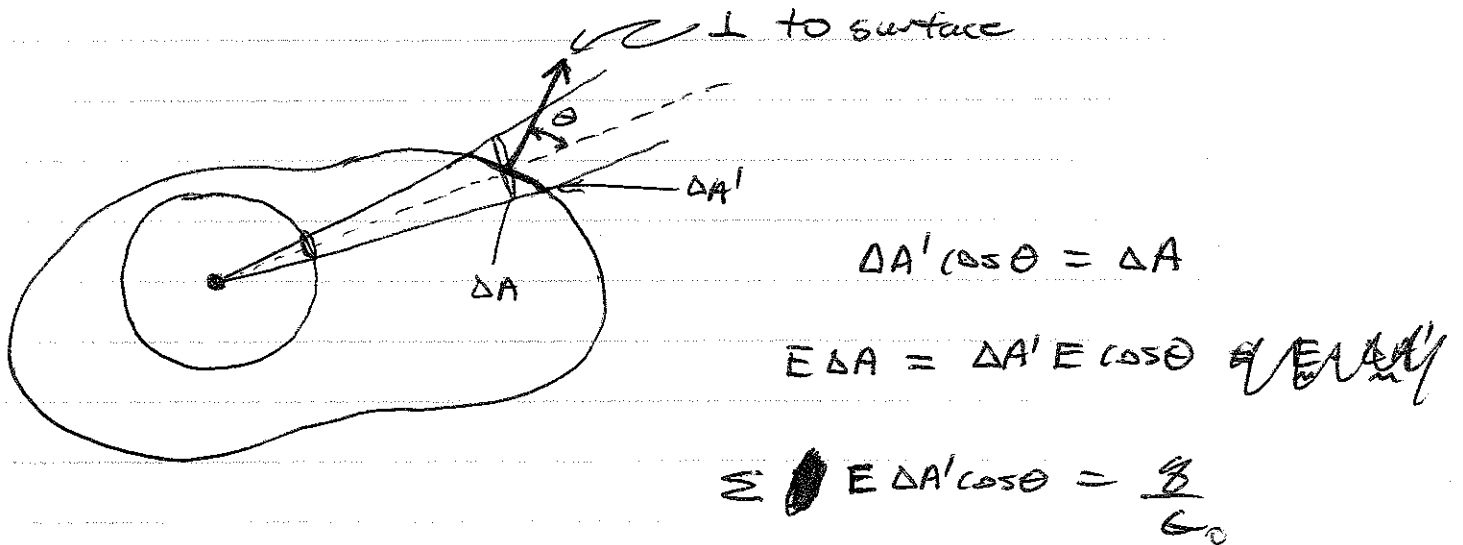 ⊥ to surface
θ
ΔA'
ΔA
ΔA' cosθ = ΔA
E ΔA = ΔA' E cosθ
Σ E ΔA' cosθ = q/ε₀